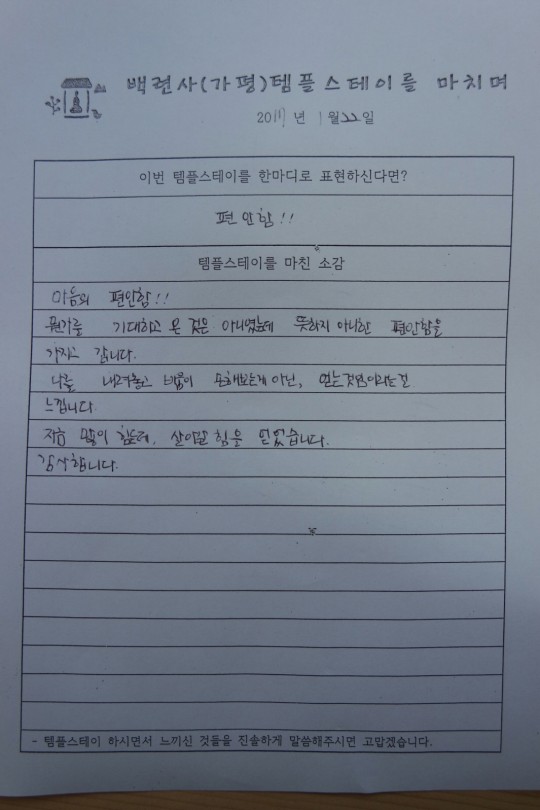 백련사(가평)템플스테이를 마치며
2017년 1월 22일
이번 템플스테이를 한마디로 표현하신다면?
편안함!!
템플스테이를 마친 소감
마음의 편안함!!
뭔가를 기대하고 온 것은 아니였는데 뜻하지 아니한 편안함을
가지고 갑니다.
나를 내려놓고 비움이 손해보는게 아닌, 얻는것이라는걸
느낍니다.
지금 많이 힘든데, 살아갈 힘을 얻었습니다.
감사합니다.
- 템플스테이 하시면서 느끼신 것들을 진솔하게 말씀해주시면 고맙겠습니다.